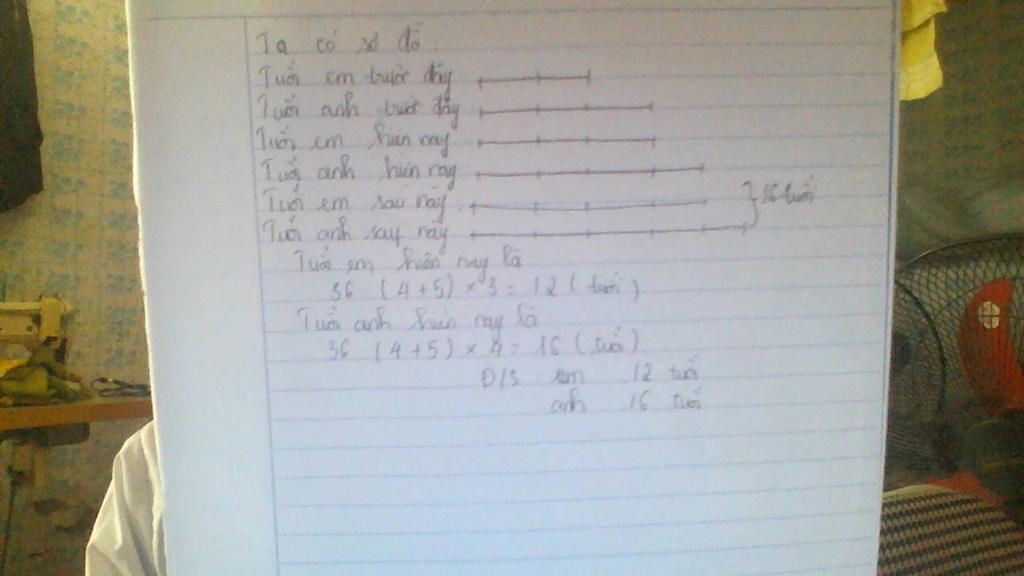 Ta có sơ đồ :
Tuổi em trước đây
Tuổi anh trước đây
Tuổi em hiện nay
Tuổi anh hiện nay
Tuổi em sau này
Tuổi anh sau này
36 tuổi
Tuổi em hiện nay là
36 : (4 + 5) × 3 = 12 (tuổi)
Tuổi anh hiện nay là
36 : (4 + 5) × 4 = 16 (tuổi)
Đ/S em 12 tuổi
anh 16 tuổi